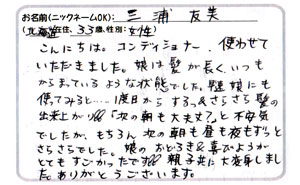 お名前(ニックネームOK): 三浦 友美
(北海道在住、33歳、性別: 女性)
こんにちは。コンディショナー、使わせて
いただきました。娘は髪が長く、いつも
からまっているような状態でした。娘にも
使ってみると……1度目から するっ&さらさら髪の
出来上がり!!「次の朝も大丈夫?」と不安気
でしたが、もちろん 次の朝も昼も夜もずっと
さらさらでした。娘のおどろき&喜びようが
とてもすごかったです!! 親子共に大変身しまし
た。ありがとうございます。